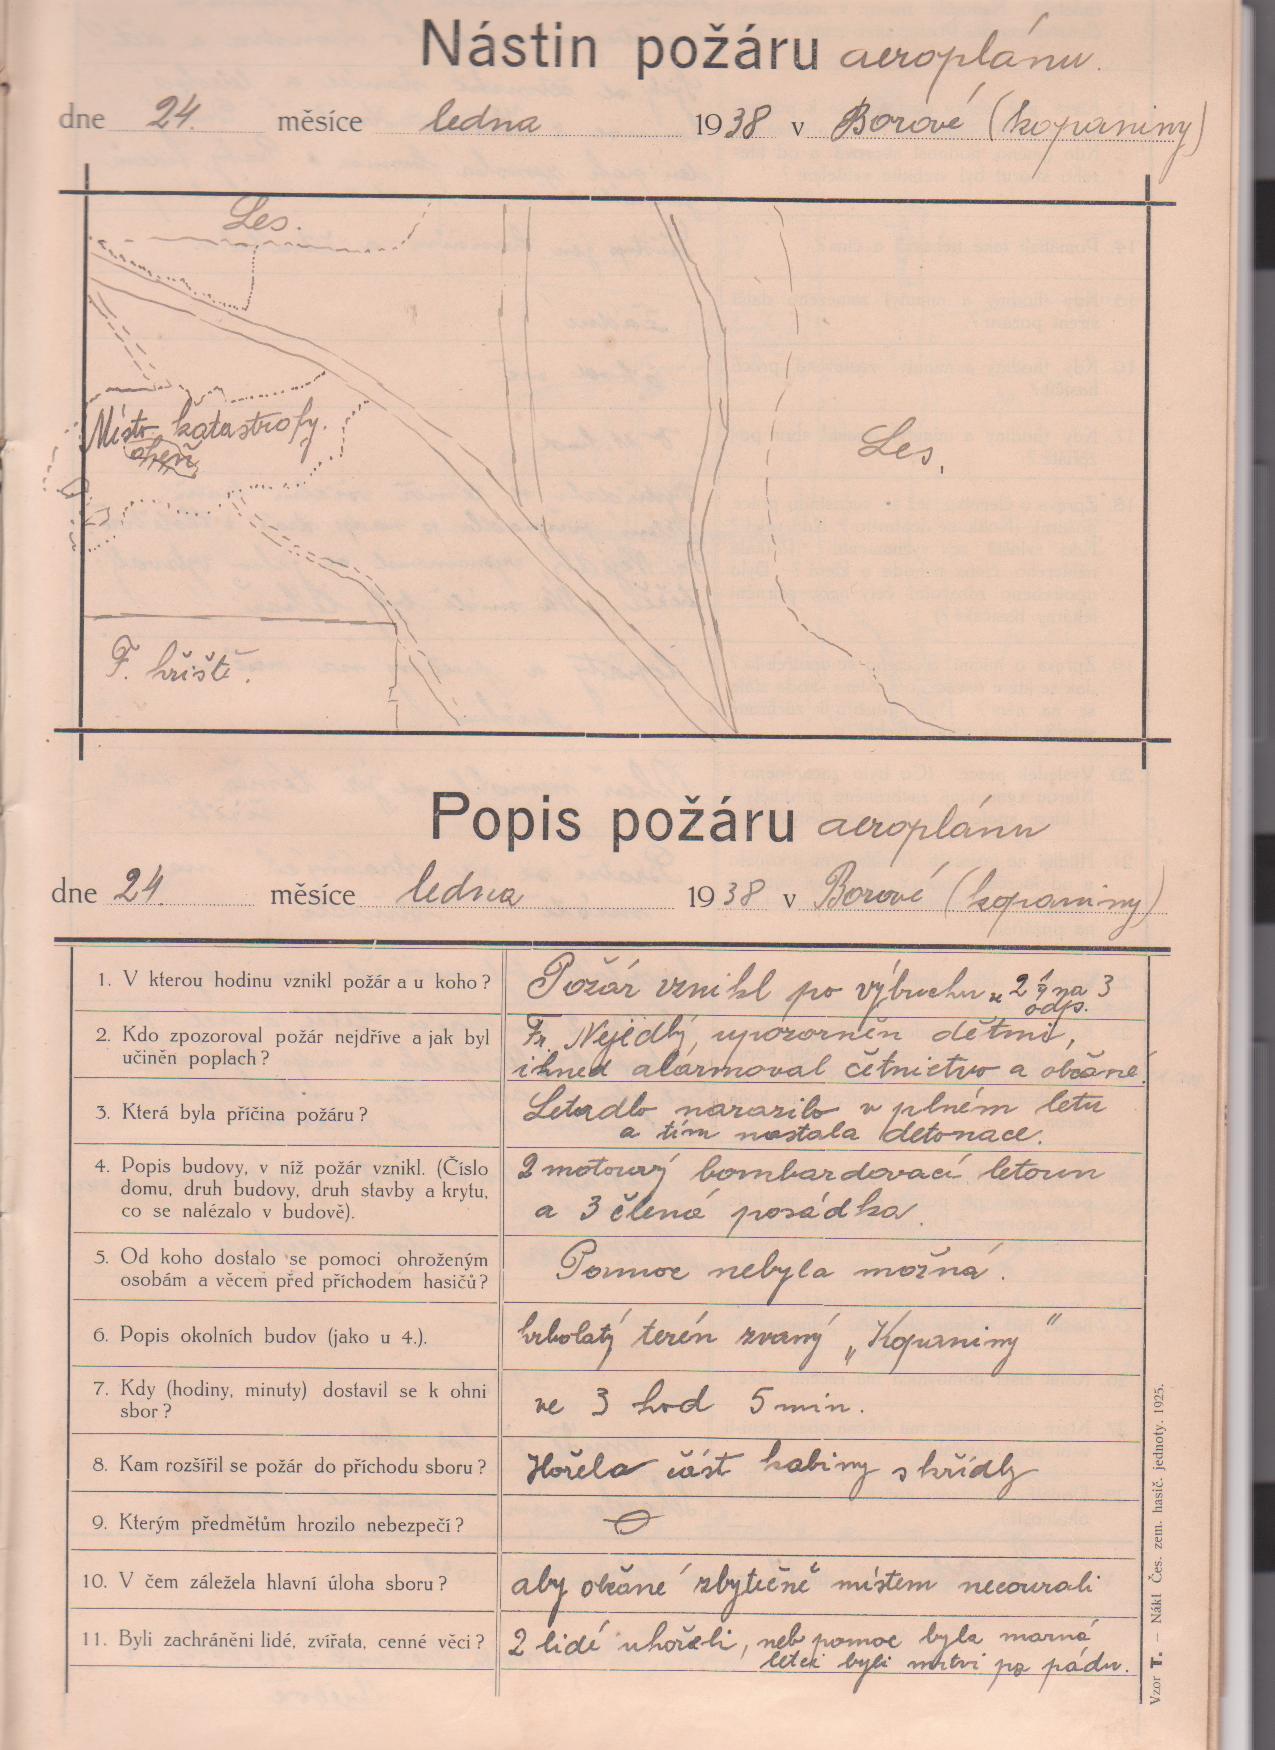 Nástin požáru aeroplánu.
dne 24. měsíce ledna 1938 v Borové (kopaniny)
Les.
Místo katastrofy.
oheň
Les.
F. hřiště.
Popis požáru aeroplánu
dne 24. měsíce ledna 1938 v Borové (kopaniny)
1. V kterou hodinu vznikl požár a u koho?
Požár vznikl po výbuchu 2 ¼ na 3
odp.
2. Kdo zpozoroval požár nejdříve a jak byl
učiněn poplach?
Fr. Nejedlý, upozorněn dětmi,
ihned alarmoval četnictvo a občané.
3. Která byla příčina požáru?
Letadlo narazilo v plném letu
a tím nastala detonace.
4. Popis budovy, v níž požár vznikl. (Číslo
domu, druh budovy, druh stavby a krytu,
co se nalézalo v budově).
2 motorový bombardovací letoun
a 3 člená posádka.
5. Od koho dostalo se pomoci ohroženým
osobám a věcem před příchodem hasičů?
Pomoc nebyla možná.
6. Popis okolních budov (jako u 4.).
hrbolatý terén zvaný „Kopaniny"
7. Kdy (hodiny, minuty) dostavil se k ohni
sbor?
ve 3 hod 5 min.
8. Kam rozšířil se požár do příchodu sboru?
Hořela část kabiny s křídly
9. Kterým předmětům hrozilo nebezpečí?
10. V čem záležela hlavní úloha sboru?
aby občané zbytečně místem necourali
11. Byli zachráněni lidé, zvířata, cenné věci?
2 lidé uhořeli, neb pomoc byla marná
letci byli mrtvi po pádu.
Vzor T. — Nákl Čes. zem. hasič. jednoty. 1925.